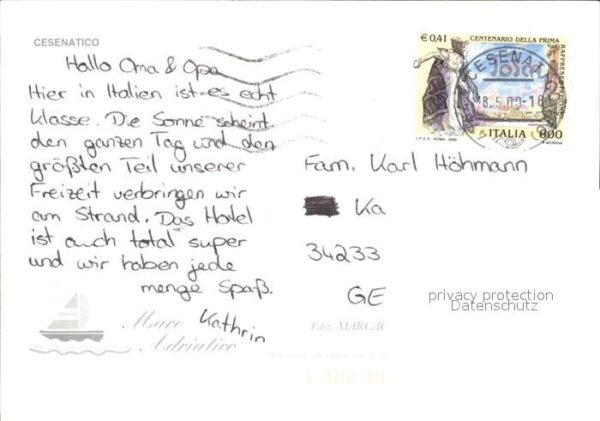 CESENATICO
Hallo Oma & Opa
Hier in Italien ist es echt
klasse. Die Sonne scheint
den ganzen Tag und den
größten Teil unserer
Freizeit verbringen wir
am Strand. Das Hotel
ist auch total super
und wir haben jede
menge Spaß.
Kathrin
Mare
Adriatico
Ediz. MARCAC
€ 0,41 CENTENARIO DELLA PRIMA
RAPPRESENTAZIONE
TOSCA
ITALIA 800
I.P.Z.S. - ROMA - 2000
CESENAT
8.5.00-18
Fam. Karl Höhmann
Ka
34233
GE
privacy protection
Datenschutz